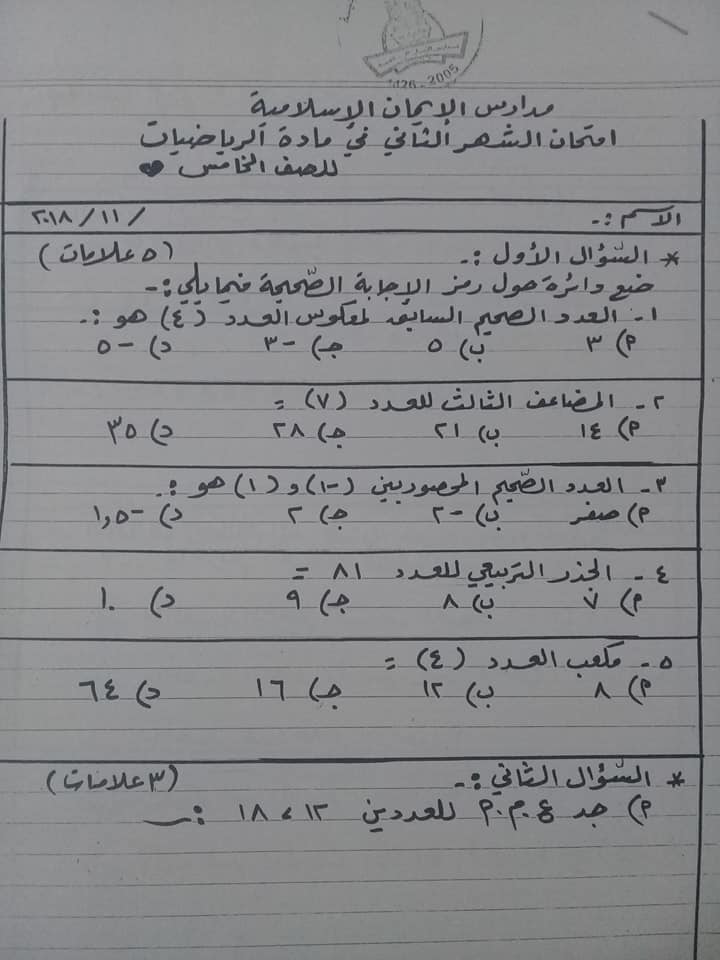 1426 - 2005
مدارس الإيمان الإسلامية
امتحان الشهر الثاني في مادة الرياضيات
للصف الخامس
الاسم :- / ١١ / ٢٠١٨
* السّؤال الأول :- (٥ علامات)
ضع دائرة حول رمز الإجابة الصّحيحة فيما يلي :-
١- العدد الصحيح السابق لمعكوس العدد (٤) هو :-
أ) ٣ ب) ٥ جـ) -٣ د) -٥
٢- المضاعف الثالث للعدد (٧) =
أ) ١٤ ب) ٢١ جـ) ٢٨ د) ٣٥
٣- العدد الصّحيح المحصور بين (-١) و (١) هو :-
أ) صفر ب) -٢ جـ) ٢ د) -١,٥
٤- الجذر التربيعي للعدد ٨١ =
أ) ٧ ب) ٨ جـ) ٩ د) ١٠
٥- مكعب العدد (٤) =
أ) ٨ ب) ١٢ جـ) ١٦ د) ٦٤
* السّؤال الثاني :- (٣ علامات)
أ) جد ع.م.أ للعددين ١٢ ، ١٨ :-